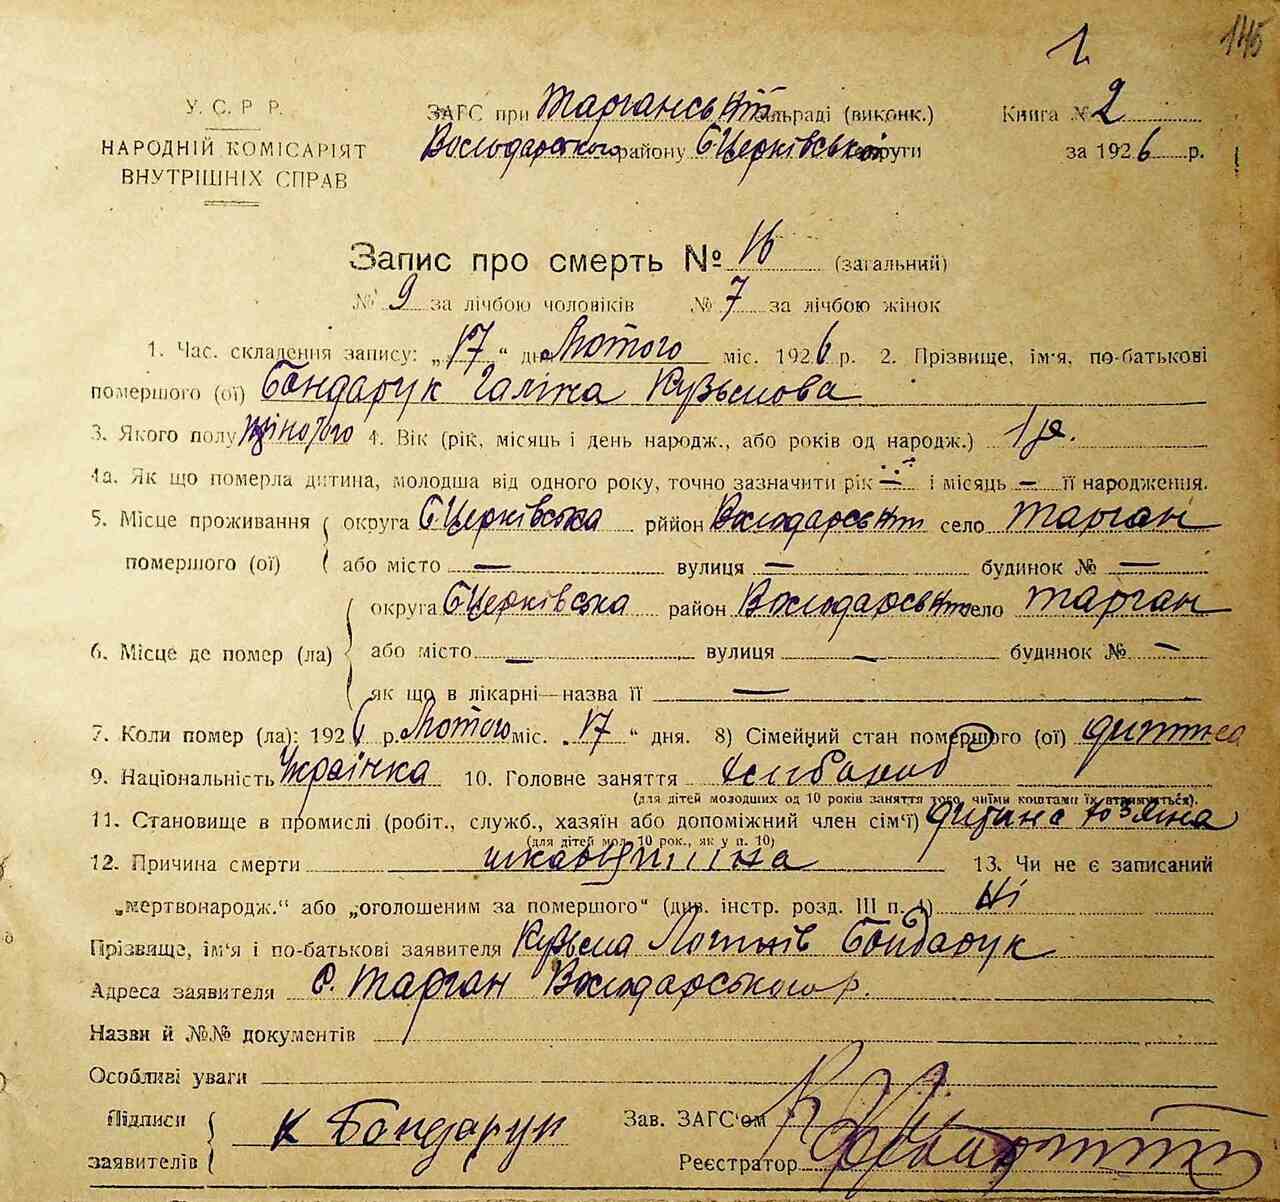 1
145
У. С. Р. Р.
НАРОДНІЙ КОМІСАРІЯТ
ВНУТРІШНІХ СПРАВ
ЗАГС при Тарганській сільраді (виконк.) Книга № 2
Володарського району Б Церківської округи за 1926 р.
Запис про смерть № 16 (загальний)
№ 9 за лічбою чоловіків № 7 за лічбою жінок
1. Час. складення запису: „17“ дня Лютого міс. 1926 р. 2. Прізвище, ім'я, по-батькові
помершого (ої) Бондарук Галіна Кузьмова
3. Якого полу жіночого 4. Вік (рік, місяць і день народж., або років од народж.) 1 р.
4а. Як що померла дитина, молодша від одного року, точно зазначити рік — і місяць — її народження.
5. Місце проживання округа Б Церківська рййон Володарський село Тарган
помершого (ої) або місто — вулиця — будинок № —
округа Б Церківська район Володарський село Тарган
6. Місце де помер (ла) або місто — вулиця — будинок № —
як що в лікарні—назва її —
7. Коли помер (ла): 1926 р. Лютого міс. „17“ дня. 8) Сімейний стан помершого (ої) дитина
9. Національність Українка 10. Головне заняття хлібороб
(для дітей молодших од 10 років заняття того, чиїми коштами їх втримується).
11. Становище в промислі (робіт., служб., хазяїн або допоміжний член сім'ї) дитина хазяїна
(для дітей мол. 10 рок., як у п. 10)
12. Причина смерти 13. Чи не є записаний
„мертвонародж.“ або „оголошеним за помершого“ (див. інстр. розд. III п. 4) Ні
Прізвище, ім'я і по-батькові заявителя Кузьма Бондарук
Адреса заявителя с. Тарган Володарського р.
Назви й №№ документів
Особливі уваги
Підписи К Бондарук Зав. ЗАГС'ом
заявителів Реєстратор